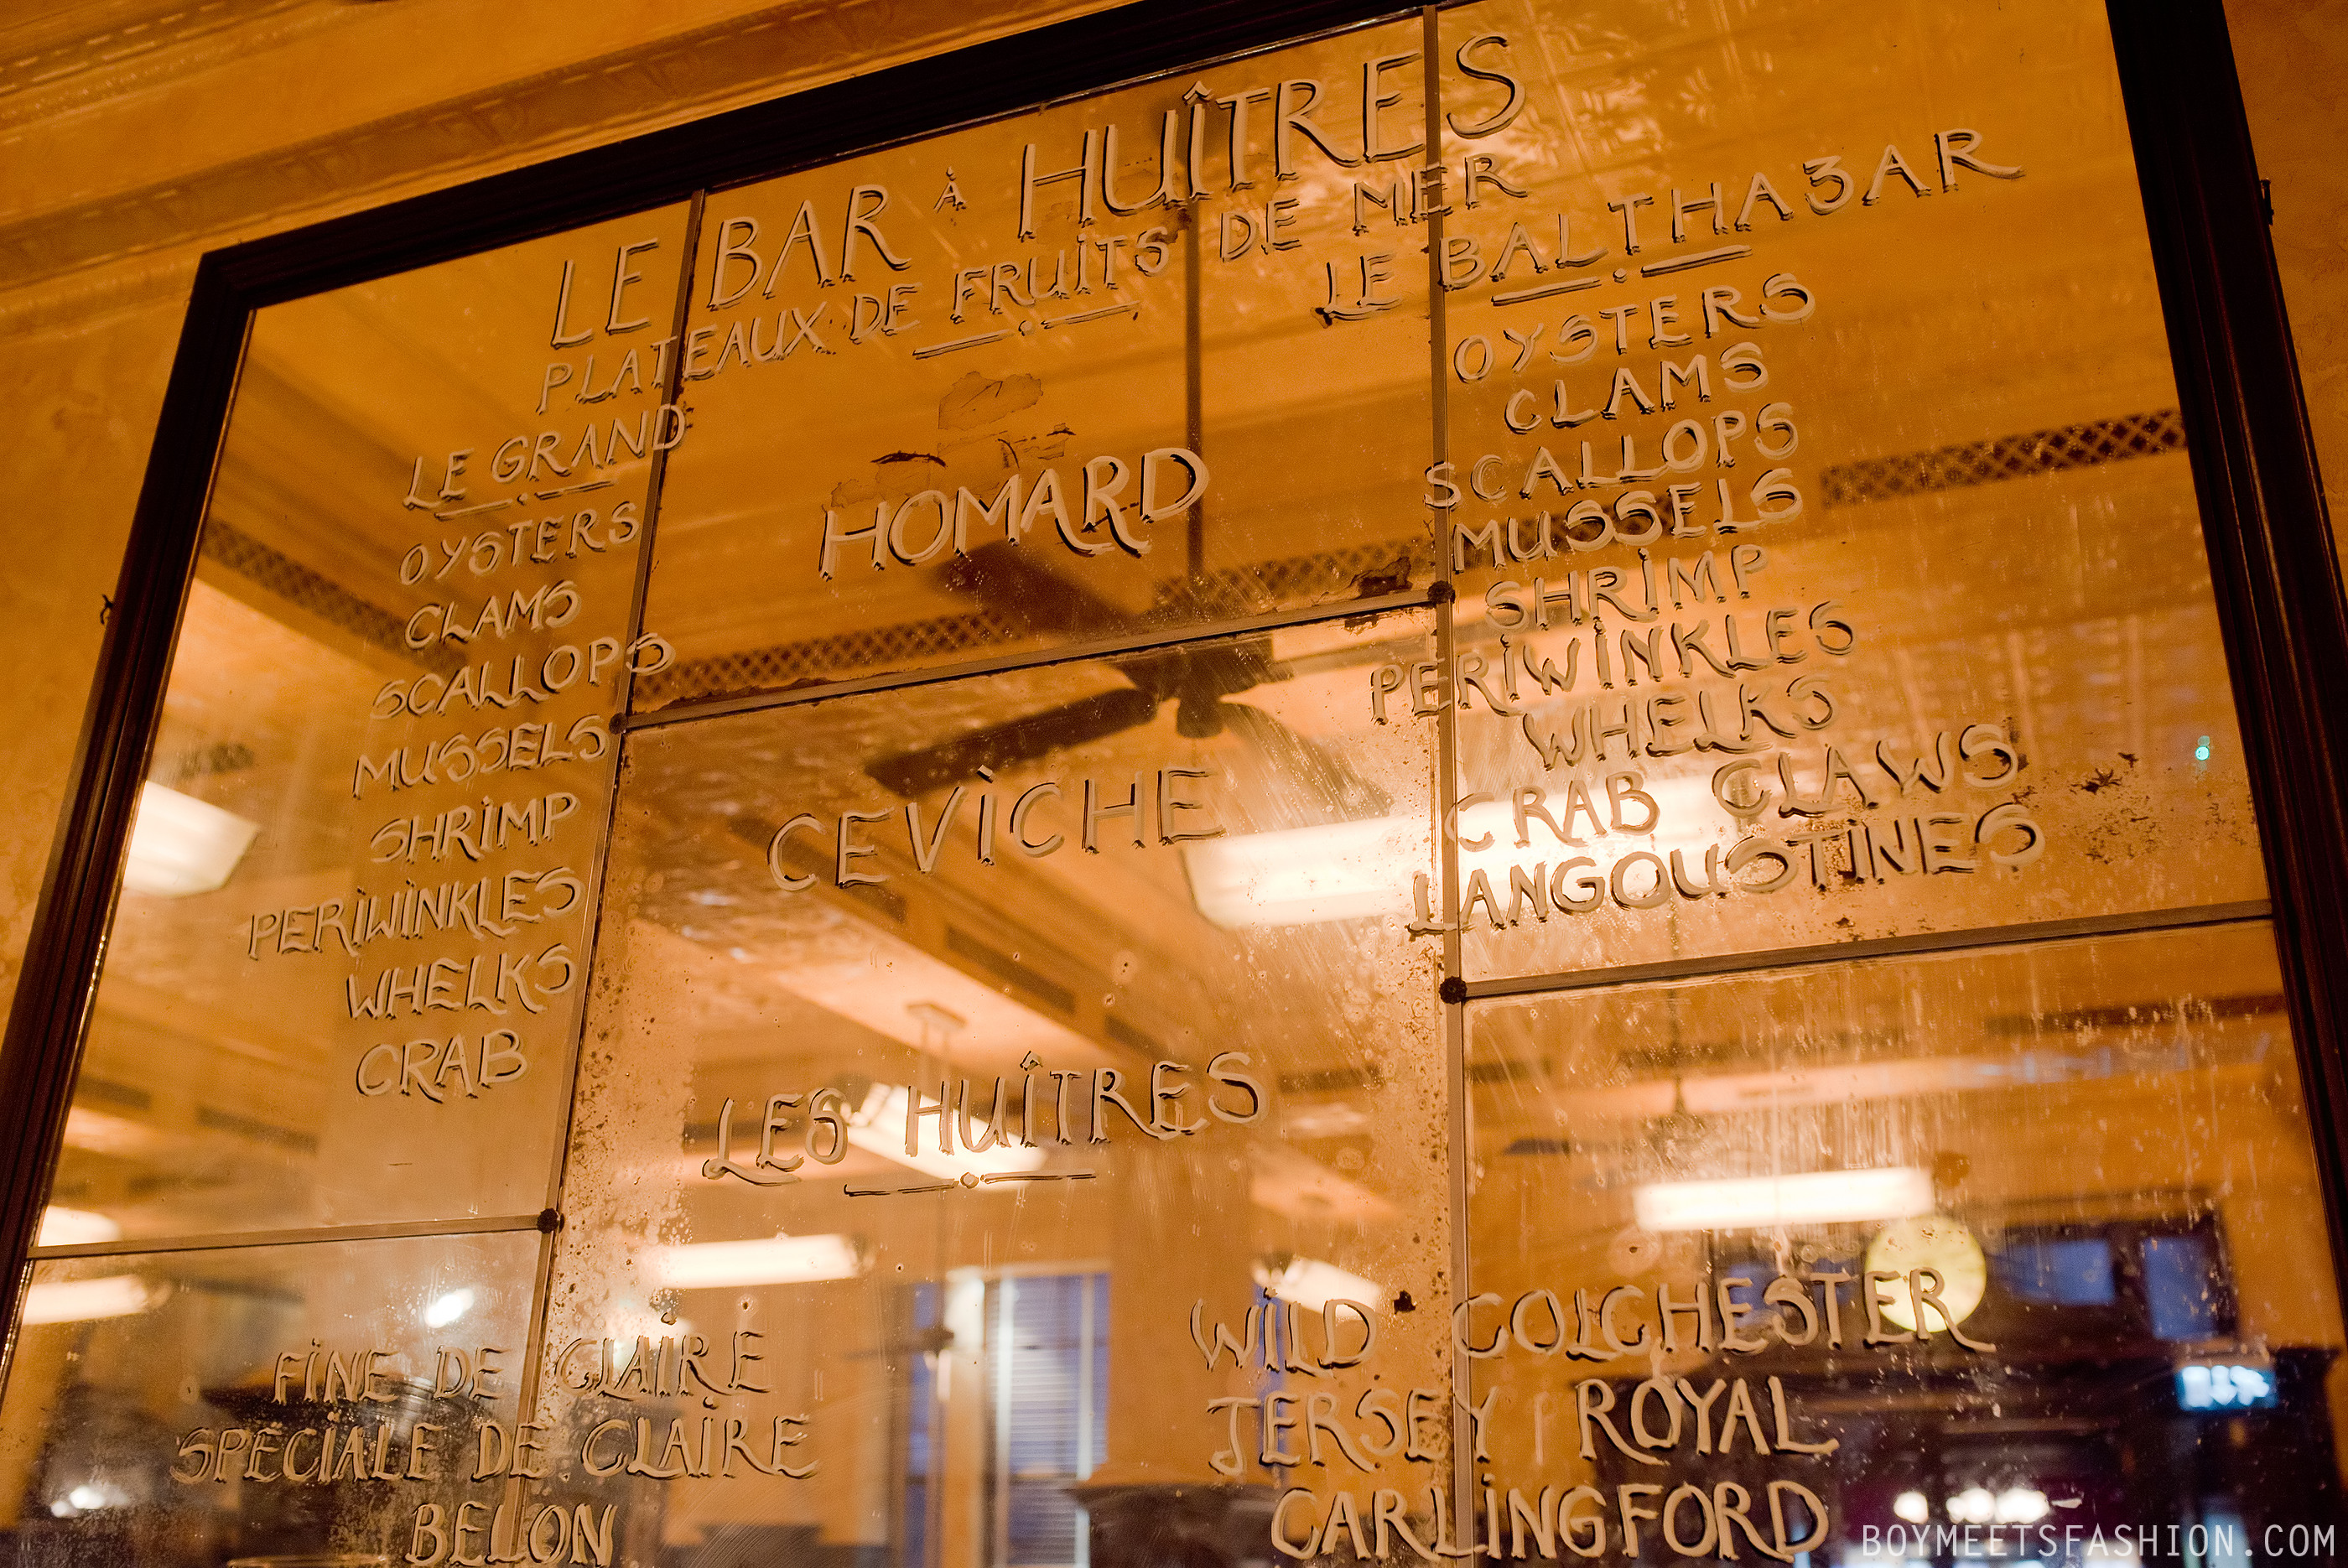 LE BAR À HUÎTRES
PLATEAUX DE FRUITS DE MER
LE GRAND
OYSTERS
CLAMS
SCALLOPS
MUSSELS
SHRIMP
PERIWINKLES
WHELKS
CRAB
HOMARD
CEVICHE
LE BALTHAZAR
OYSTERS
CLAMS
SCALLOPS
MUSSELS
SHRIMP
PERIWINKLES
WHELKS
CRAB CLAWS
LANGOUSTINES
LES HUÎTRES
FINE DE CLAIRE
SPÉCIALE DE CLAIRE
BELON
WILD COLCHESTER
JERSEY ROYAL
CARLINGFORD
BOYMEETSFASHION.COM